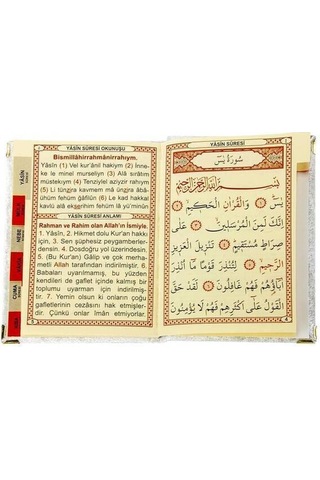 YÂSİN SÛRESİ OKUNUŞU
Bismillâhirrahmânirrahıym.
Yâsîn (1) Vel kur'ânil hakiym (2) İnne-
ke le minel murseliyn (3) Alâ sırâtım
müstekıym (4) Tenziylel aziyzir rahıym
(5) Li tünzira kavmem mâ ünzira âbâ-
ühüm fehüm ğâfilûn (6) Le kad hakkal
kavlü alâ ekserihim fehüm lâ yü'minûn
YÂSİN SÛRESİ ANLAMI
Rahman ve Rahim olan Allah'ın İsmiyle.
1. Yâsîn, 2. Hikmet dolu Kur'an hakkı
için, 3. Sen şüphesiz peygamberler-
densin. 4. Dosdoğru yoldasın.
5. (Bu Kur'an) Gâlip ve çok merha-
metli Allah tarafından indirilmiştir. 6.
Babaları uyarılmamış, bu yüzden
kendileri de gaflet içinde kalmış bir
toplumu uyarman için indirilmiş-
tir. 7. Yemin olsun ki onların çoğu
gafletlerinin cezasını hak etmişler-
dir. Çünkü onlar îman etmiyorlar.
YÂSİN
CUMA
YÂSİN SÛRESİ
سُورَةُ يٰسٓ
بِسْمِ اللّٰهِ الرَّحْمٰنِ الرَّحِيمِ
يٰسٓ ١ وَالْقُرْاٰنِ الْحَكِيمِ ٢
اِنَّكَ لَمِنَ الْمُرْسَلِينَ ٣ عَلٰى
صِرَاطٍ مُسْتَقِيمٍ ٤ تَنْزِيلَ الْعَزِيزِ
الرَّحِيمِ ٥ لِتُنْذِرَ قَوْمًا مَٓا اُنْذِرَ
اٰبَٓاؤُ۬هُمْ فَهُمْ غَافِلُونَ ٦ لَقَدْ حَقَّ
الْقَوْلُ عَلٰٓى اَكْثَرِهِمْ فَهُمْ لَا يُؤْمِنُونَ
4